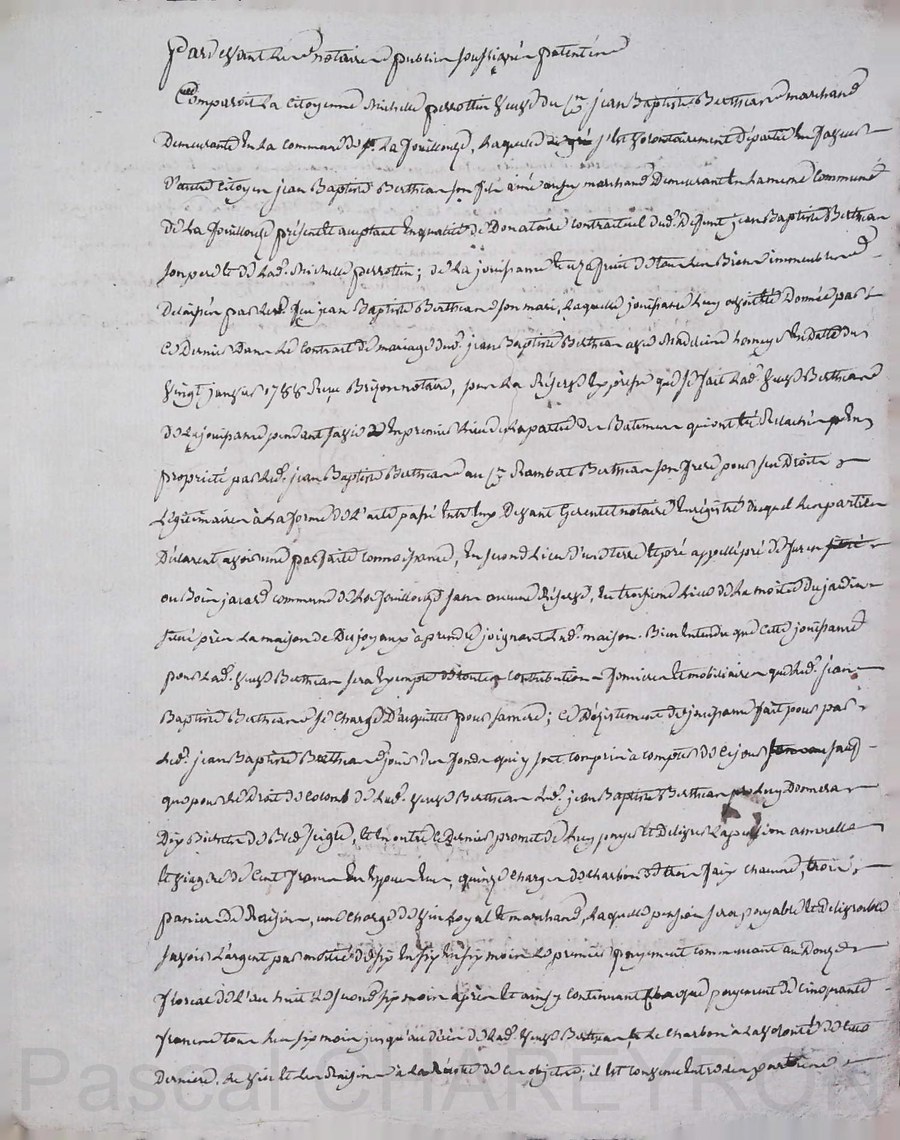 Pardevant Le notaire public soussigné patenté
Comparoit La citoyenne Michelle perrottin veuve du Cn jean Baptiste Berthean marchand
Demeurante En La Commune de La fouillouze, Laquelle s'est volontairement départie En faveur
d'autre Citoyen jean Baptiste Berthean son fils ainé aussy marchand Demeurant En La meme Commune
de La fouillouze présent et acceptant En qualité de Donataire contractuel dud. Defunt jean Baptiste Berthean
son pere et de Lad. Michelle perrottin; de La jouissance et uzufruit de tous Les Biens immeubles
Delaissés par Led. feu jean Baptiste Berthean son mari, Laquelle jouissance Luy avoit été Donnée par
Ce Dernier Dans Le Contrat de mariage dud. jean Baptiste Berthean avec Madeleine En datte du
Vingt janvier 1788 Reçu notaire, sous La Réserve Expresse que se fait Lad. veuve Berthean
de La jouissance pendant sa vie En premier Lieu de La partie des Batiments qui ont été Relachés En
propriété par Led. jean Baptiste Berthean au Cn Rambert Berthean son frere pour ses Droits
Légitimaires à La forme de L'acte passé Entr'Eux Devant notaire Enregistré duquel Les parties
Déclarent avoir une parfaite connoissance, En second Lieu d'une terre et pré appellé pré de
ou Bois jarard commune de La fouillouze sans aucune Réserve, En troisieme Lieu de La moitié du jardin
situé près La maison de Desjoyaux à prendre joignant Lad. maison. Bien Entendu que cette jouissance
pour Lad. veuve Berthean sera Exempte de toutes Contributions foncieres et mobiliaires que Led. jean
Baptiste Berthean se Charge D'acquitter pour sa mere; Ce Désistement de jouissance fait pour par
Led. jean Baptiste Berthean jouir des fonds qui y sont compris à compter de ce jour sauf
que pour Le Droit de Colons de Lad. veuve Berthean Led. jean Baptiste Berthean Luy Donnera
Dix Bichets de Bled seigle, Et En outre Ce Dernier promet de Luy payer et Delivrer La pension annuelle
et viagere de Cent francs En Espèces, quinze Charges de Charbon, trois
paniers de Raisins, une Charge de vin Loyal et marchand, Laquelle pension sera payable et delivrable
savoir L'argent par moitié de six En six mois Le premier payement commencant au Douze
floreal de L'an huit Le second six mois après et ainsy continuant Chaque payement de Cinquante
francs tous Les six mois jusqu'au décès de Lad. veuve Berthean, Et Le Charbon à La volonté de Cette
Derniere, Le vin et Les Raisins à La Récolte de Ces objets; il Est convenu Entre Les parties
Pascal CHAREYRON